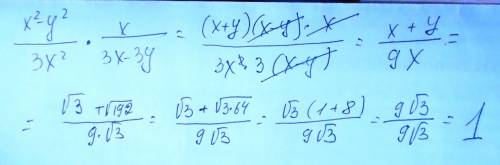 x²-y²/3x² · x/3x-3y = (x+y)(x-y)·x/3x²·3(x-y) = x+y/9x =
= √3+√192/9·√3 = √3+√3·64/9√3 = √3(1+8)/9√3 = 9√3/9√3 = 1